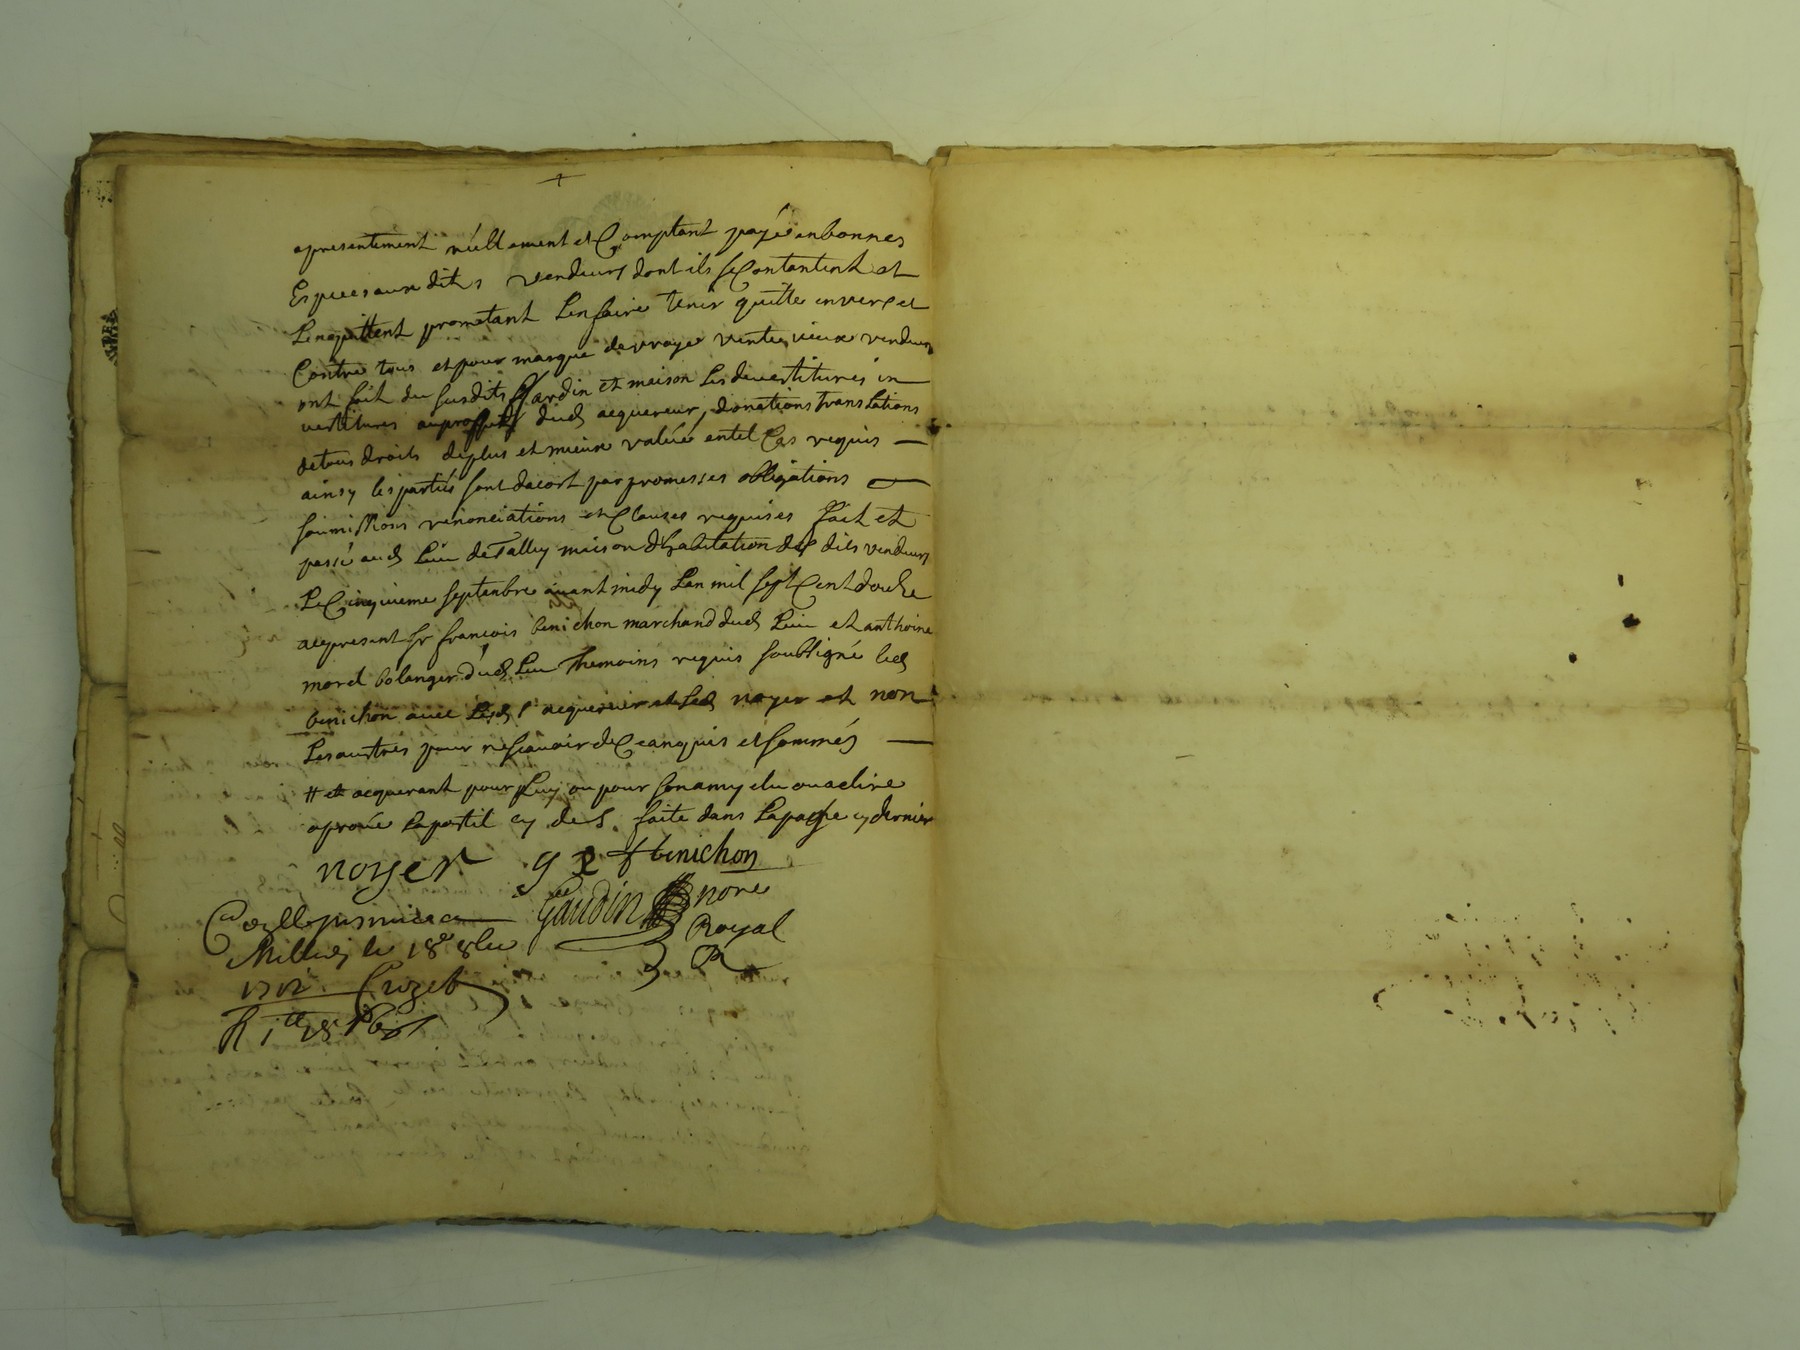 apresentement réellement et Comptant payé en bonnes
Especes aux dits vendeurs dont ils se Contantent et
Len quittent prometant Len faire tenir quitte envers et
Contre tous et pour marque de vraye vente iceux vendeurs
ont fait du susdits Jardin et maison Les devestitures in
vestitures au proffit dud acquereur, donations translations
de tous droits de plus et mieux value en tel Cas requis
ainsy les parties sont dacort par promesses obligations
soumissions renonciations et Clauses requises fait et
passé aud Lieu de maison d'habitation des dits vendeurs
Le Cinquieme septembre avant midy Lan mil sept Cent douze
a ce present sr francois benichon marchand dud Lieu et anthoine
morel bolanger dud Lieu themoins requis soubsigné led
benichon avec Led acquereur et Led noyer et non
Les autres pour ne scavoir de Ce enquis et sommés
# et acquerant pour Luy ou pour son amy elu ou a elire
aprouve Lapostil cy des. faite dans Lapage cy dernier
noyer g f benichon
Gaudin nore
Royal
le 18e 8bre
1712. Crozet